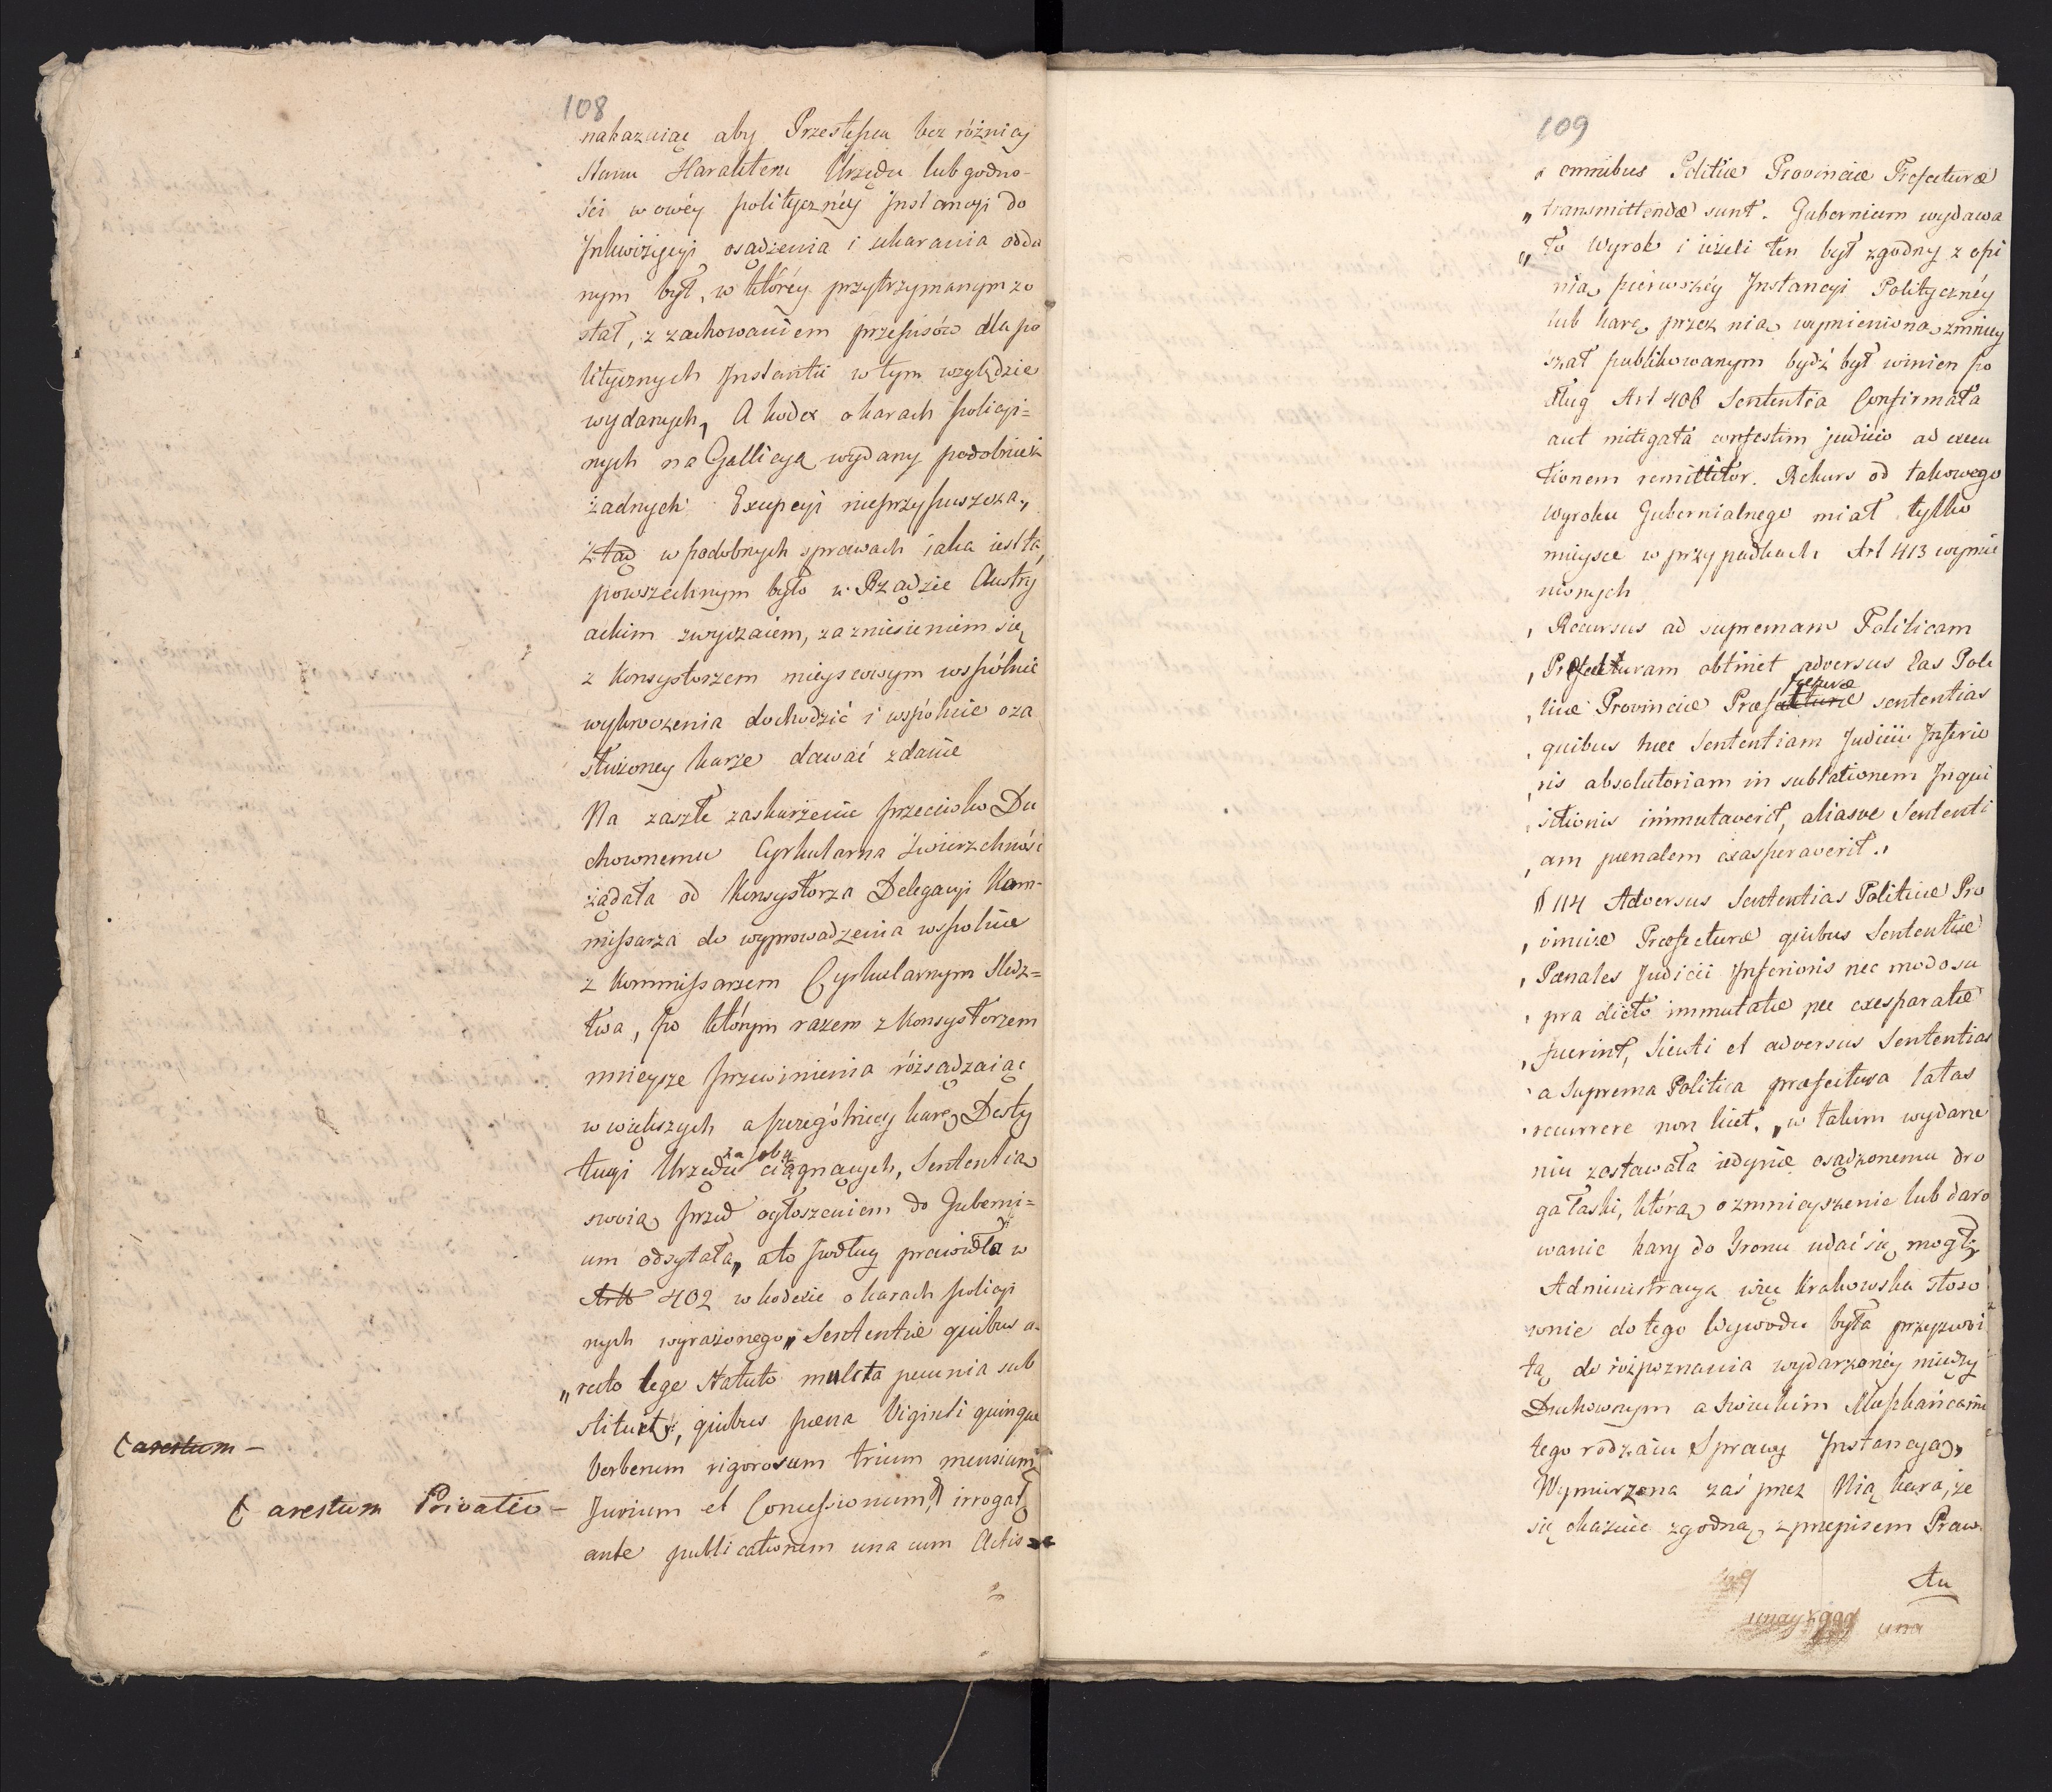 108
nakazuiąc aby Przestępca bez różnicy
Stanu Harakteru Urzędu lub godno-
ści w owéy polityczney Instancyi do
Inkwizycyi osądzenia i ukarania odda
nym był, w któréy przytrzymanym zo
stał, z zachowaniem przepisów dla po
litycznych Instantii w tym względzie
wydanych, A kodex o karach policyi=
nych na Gallicyą wydany podobnież
żadnych Excepcyi nieprzypuszcza,
ztąd w podobnych sprawach iaka iest ta,
powszechnym było w Rządzie Austry
ackim zwyczaiem, za zniesieniem się
z Konsystorzem mieyscowym wspólnie
wykroczenia dochodzić i wspólnie o za
służoney karze dawać zdanie
Na zaszłe zaskarżenie przeciwko Du
chownemu Cyrkularna Zwierzchność
żądała od Konsystorza Delegacyi Kom-
missarza do wyprowadzenia wspolnie
z Kommissarzem Cyrkularnym Sledz=
twa, po którym razem z Konsystorzem
mnieysze przewinienia rózsądzaiąc
w większych a szczególniey karę Desty
tucyi Urzędu za sobą ciągnących, Sententia
swoią przed ogłoszeniem do Guberni=
um odsyłała, a to podług prawidła w
Artt 402 w kodexie o karach policyi
nych wyrażonego „ Sententiæ quibus a-
„ recto lege Statuto mulcta pecunia sub
stituit, quibus pœna Viginti quinque
Verberum rigorosum trium mensium
C arestum -
C arestum Privatio - Jurium et Concessionum irrogat
ante publicationem una cum Actis
109
„ omnibus Politicæ Provinciæ Præfecturæ
„ transmittendæ sunt. Gubernium wydawa
„ ło Wyrok i ieżeli ten był zgodny z opi
nią pierwszéy Instancyi Polityczney
lub karę przez nią wymienioną zmniey
szał publikowanym bydź był winien po
dług Art 406 Sententia Confirmata
aut mitigata confestim judicio ad execu
tionem remittitor. Rekurs od takowego
Wyroku Gubernialnego miał tylko
mieysce w przypadkach Art 413 wymie
nionych
, Recursus ad supremam Politicam
, Prefecturam obtinet adversus eas Poli
, ticæ Provinciæ Præfecturæ fecturæ sententias
, quibus hæc Sententiam Judicii Inferio
, ris absolutoriam in sublationem Inqui
, sitionis immutaverit, aliasve Sententi
, am pœnalem exasperaverit.„
§ 114 Adversus Sententias Politicæ Pro
, vinciæ Præfecturæ quibus Sententiæ
, Pœnales Judicii Inferioris nec modo su
, pra dicto immutatæ nec exesparatæ
, fuerint, Sicuti et adversus Sententias
, a Suprema Politica præfectura latas
, recurrere non licet. „ w takim wydarze
niu zostawała iedynie osądzonemu dro
ga łaski, którą o zmnieyszenie lub daro
wanie kary do Tronu udać się mogł,
Administracya więc Krakowska stoso
wnie do tego Wywodu była przyzwoi
tą do rozpoznania wydarzonéy między
Duchownym a Swieckim Mieszkańcami
tego rodzaiu Sprawy Instancyą,
Wymierzona zaś przez Nią kara, że
się okazuie zgodną z przepisem Praw.
Au
una